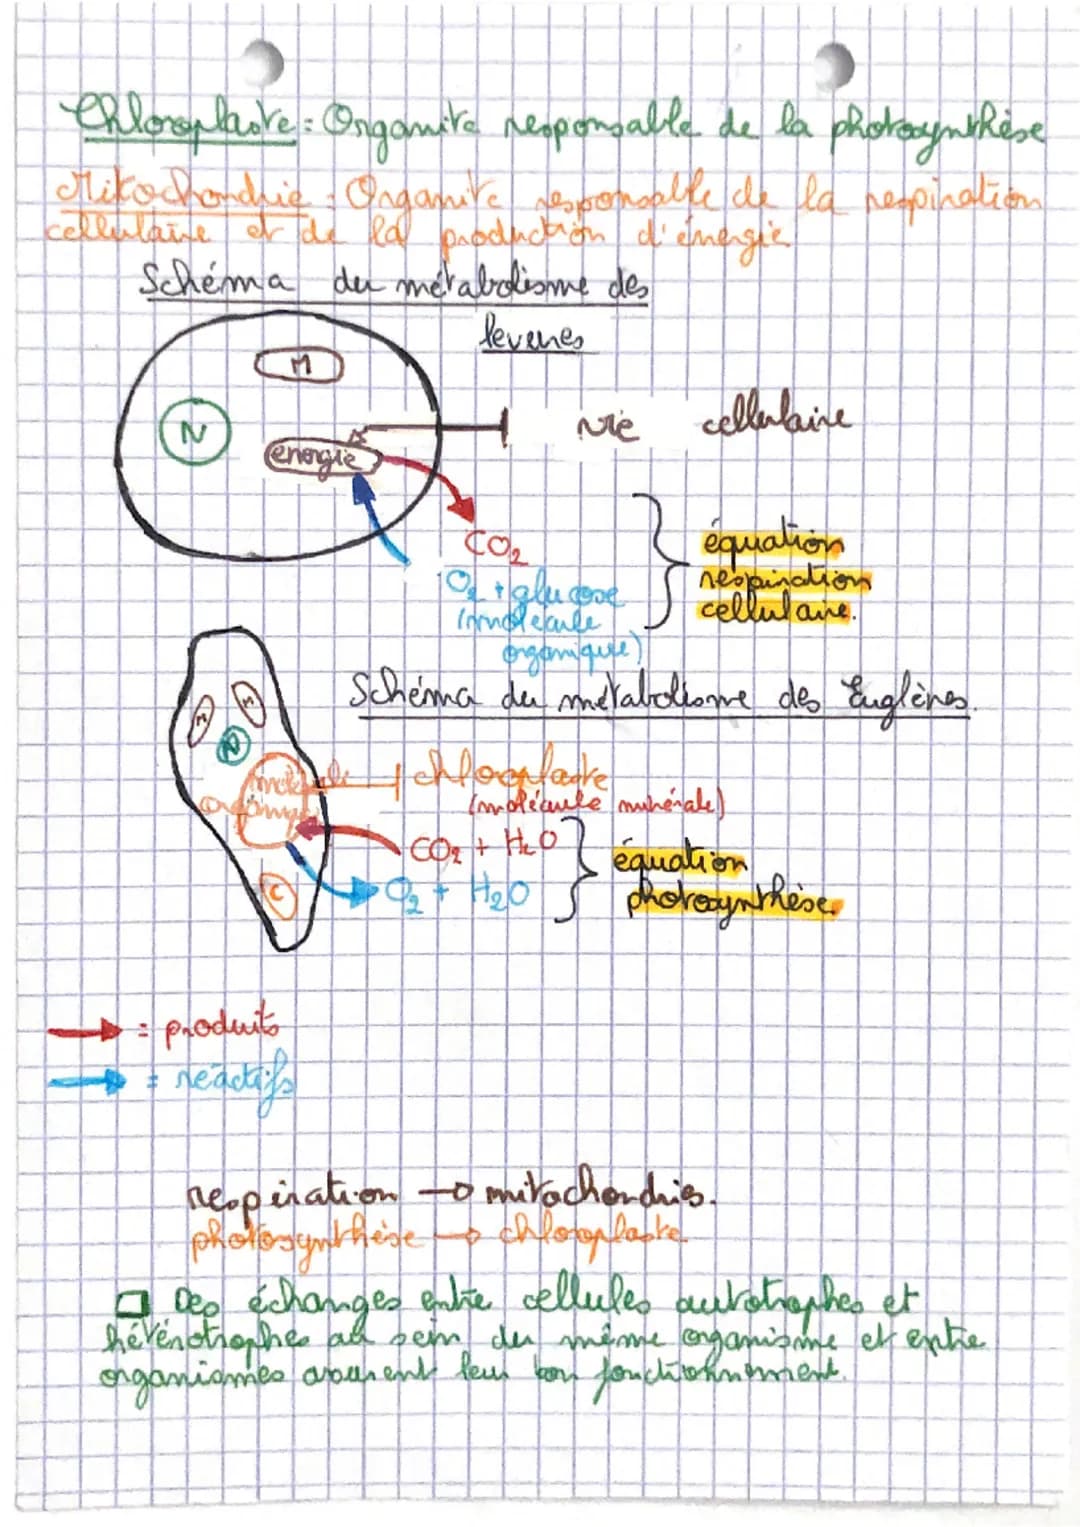 Chloroplaste : Organite responsable de la photosynthèse
Mitochondrie : Organite responsable de la respiration
cellulaire et de la production d'énergie
Schéma du métabolisme des
levures
M
N
énergie
vie cellulaire
CO₂
O₂ + glucose
(molécule
organique)
équation
respiration
cellulaire.
Schéma du métabolisme des Euglènes.
M
M
N
molécule
organique
chloroplaste
(molécule minérale)
CO₂ + H₂O
O₂ + H₂O
équation
photosynthèse
C
= produits
= réactifs
respiration → mitochondries.
photosynthèse → chloroplaste
Des échanges entre cellules autotrophes et
hétérotrophes au sein du même organisme et entre
organismes assurent leur bon fonctionnement.